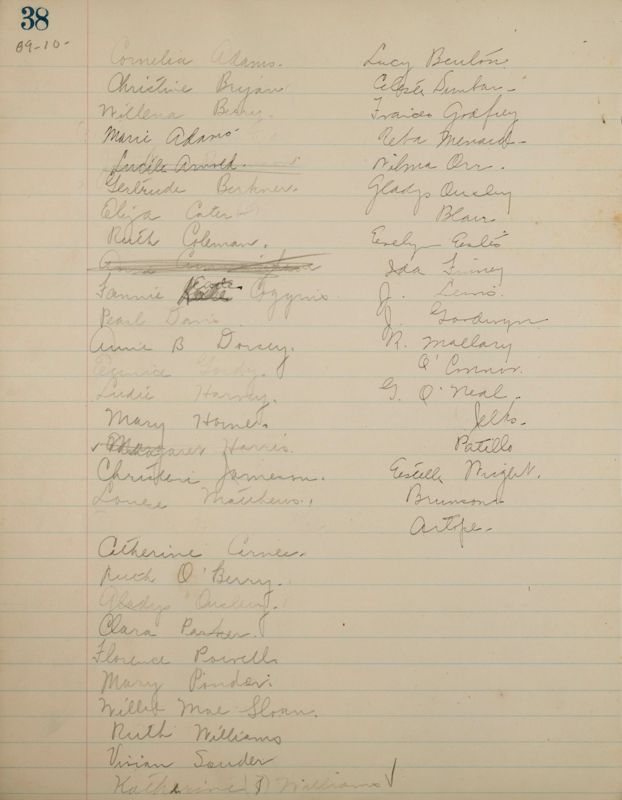 38
09-10-
Cornelia Adams.
Christine Bryan
Willena Berry.
Marie Adams
Lucile Arnold.
Gertrude Berkner.
Eliza Cater
Ruth Coleman.
Fannie Kate Coggins.
Pearl Davis
Annie B Dorsey.
Eunice Gordy.
Ludie Harvey.
Mary Horne.
Margaret Harris.
Jameson.
Matthews.
Catherine
Ruth O'Berry.
Gladys Ousley.
Clara Parker.
Florence Powell
Mary Ponder.
Willie Mae Sloan.
Ruth Williams
Vivian Souder
Katharine D Williams
Lucy Benton
Celeste Dunbar
Frances Godfrey
Reba Menard
Wilma Orr.
Gladys Ousley
Blair
Evelyn Estes
Ida Finney
J. Lewis.
J. Goodwyn
R. Mallary
O'Connor.
G. O'Neal.
Jelks.
Patillo
Estelle Wright.
Brunson
Artope.